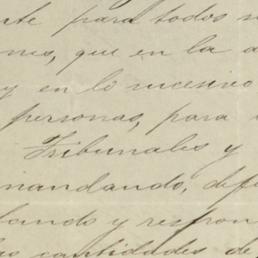 nte para todos s
ones, que en la a
y en lo sucesivo
personas, para
Tribunales y
mandando, defe
bando y respon
las cantidades de